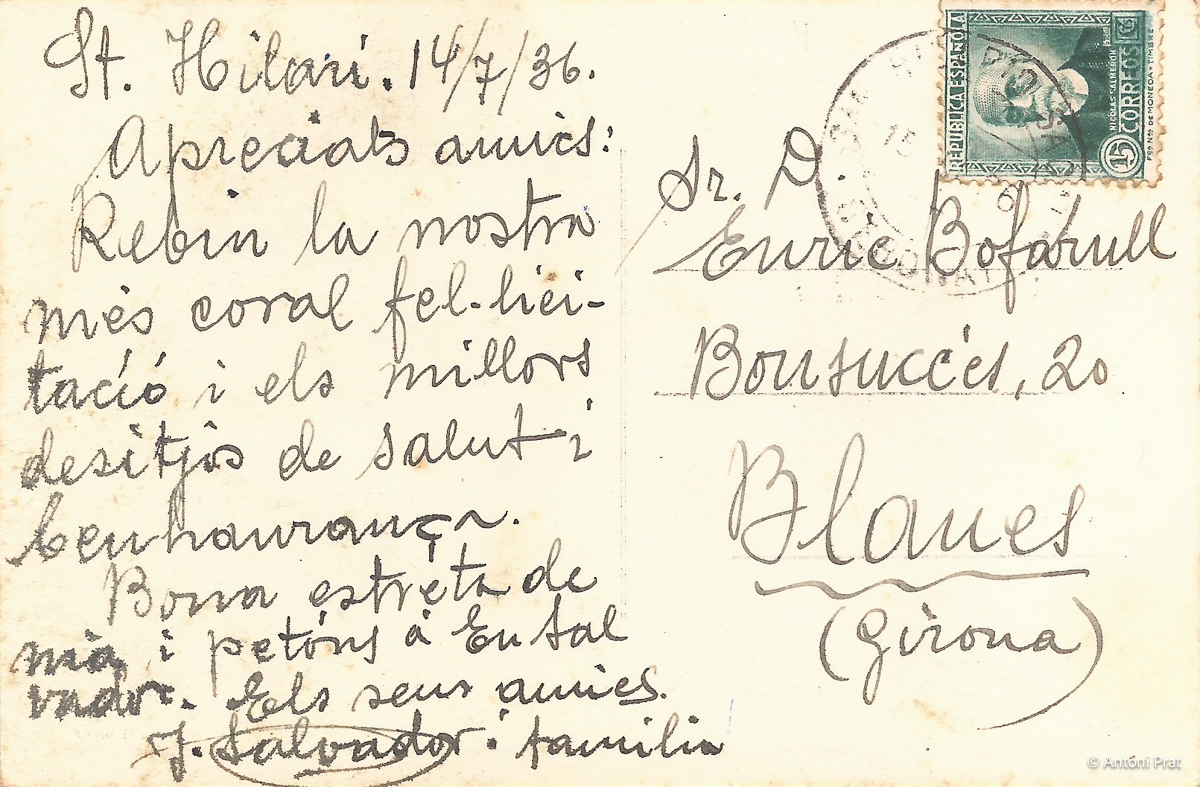 St. Hilari. 14/7/36.
Apreciats amics:
Rebin la nostra
més coral fel-lici-
tació i els millors
desitjos de salut i
benhaurança.
Bona estreta de
mà i petóns á En Sal
vador. Els seus amics.
J. Salvador i familia
Sr. D
Enric Bofarull
Bonsuccés, 20
Blanes
(Girona)
REPUBLICA ESPAÑOLA
NICOLAS SALMERON
CORREOS
15 CS
FCA. NAL. DE MONEDA Y TIMBRE
15
© Antóni Prat